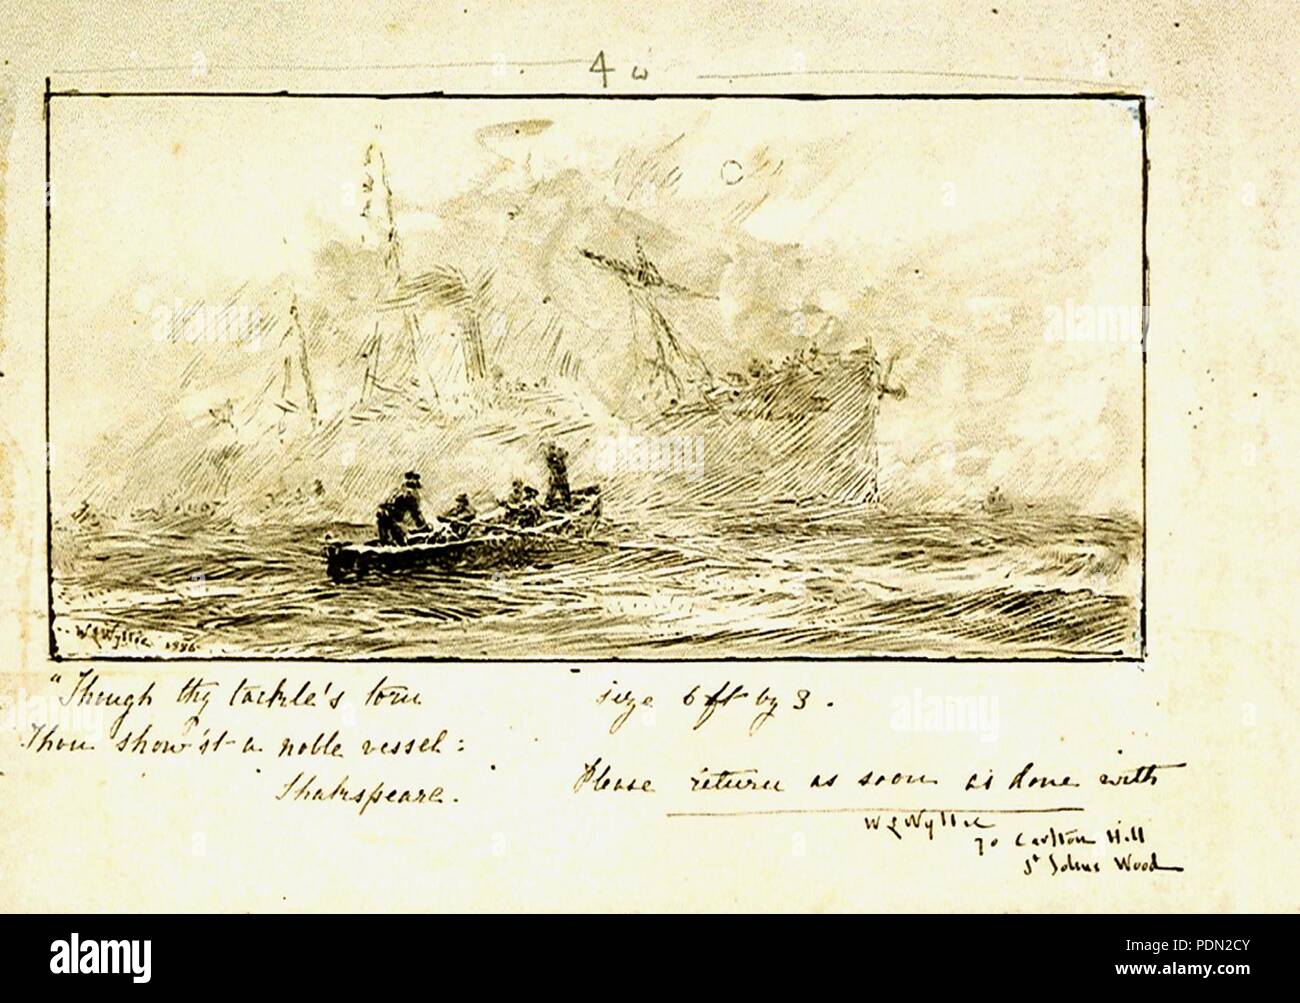 4 w
W L Wyllie 1886
"Though thy tackle's torn
Thou show'st a noble vessel:
Shakspeare.
size 6 ft by 3.
Please return as soon as done with
W L Wyllie
70 Carlton Hill
St Johns Wood
alamy
alamy
alamy
alamy
alamy
alamy
Image ID: PDN2CY
www.alamy.com